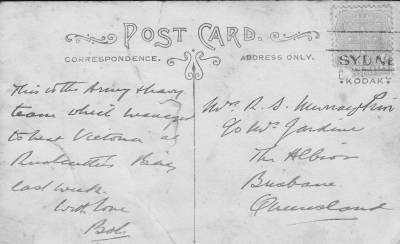 POST CARD.
CORRESPONDENCE.
ADDRESS ONLY.
SYDNE
KODAK
This is the Army & Navy
team which managed
to beat Victoria at
Rushcutters Bay
last week.
With love
Bob.
Mrs R. S. Murray Prior
C/o Mrs Jardine
The Albion
Brisbane
Queensland